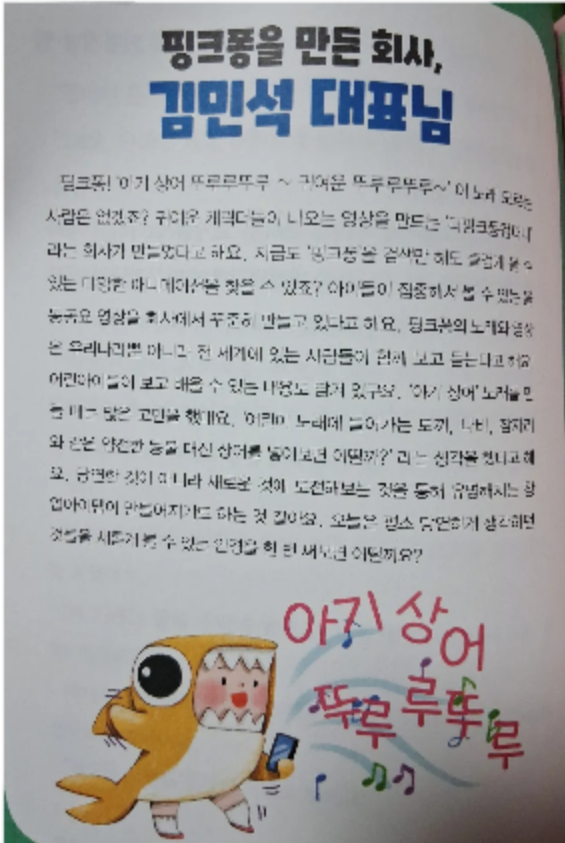 핑크퐁을 만든 회사,
김민석 대표님
핑크퐁! '아기 상어 뚜루루뚜루 ~ 귀여운 뚜루루뚜루~' 이 노래 모르는
사람은 없겠죠? 귀여운 캐릭터들이 나오는 영상을 만드는
라는 회사가 만들었다고 해요. 지금도 '핑크퐁'을 검색만 해도 즐겁게 볼 수
있는 다양한 애니메이션을 찾을 수 있죠? 아이들이 집중해서 볼 수 있는
동요 영상을 회사에서 꾸준히 만들고 있다고 해요. 핑크퐁의 노래와 영상
은 우리나라뿐 아니라 전 세계에 있는 사람들이 함께 보고 듣는다고 해요.
어린아이들이 보고 배울 수 있는 내용도 많게 있구요. '아기 상어' 노래를 만
들 때는 많은 고민을 했대요. '어린이 노래에 들어가는 토끼, 나비, 잠자리
와 같은 안전한 동물 대신 상어를 넣어보면 어떨까?' 라는 생각을 했다고 해
요. 당연한 것이 아니라 새로운 것에 도전해보는 것을 통해 유명해지는 창
업아이템이 만들어지기도 하는 것 같아요. 오늘은 평소 당연하게 생각하던
것들을 새롭게 볼 수 있는 안경을 한 번 써보면 어떨까요?
아기 상어
뚜루루뚜루